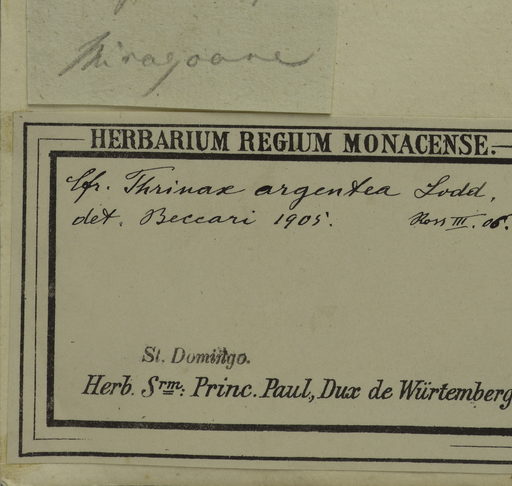 Miragoane
HERBARIUM REGIUM MONACENSE.
Cfr. Thrinax argentea Lodd.
det. Beccari 1905. Ross III. 06.
St. Domingo.
Herb. Srm: Princ. Paul, Dux de Würtemberg